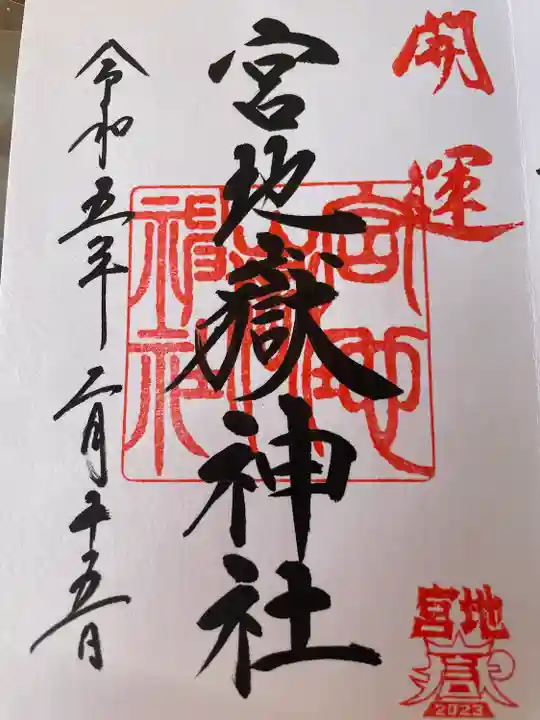 開運
宮地嶽神社
令和五年二月十五日
宮地嶽神社
宮地
嶽
2023